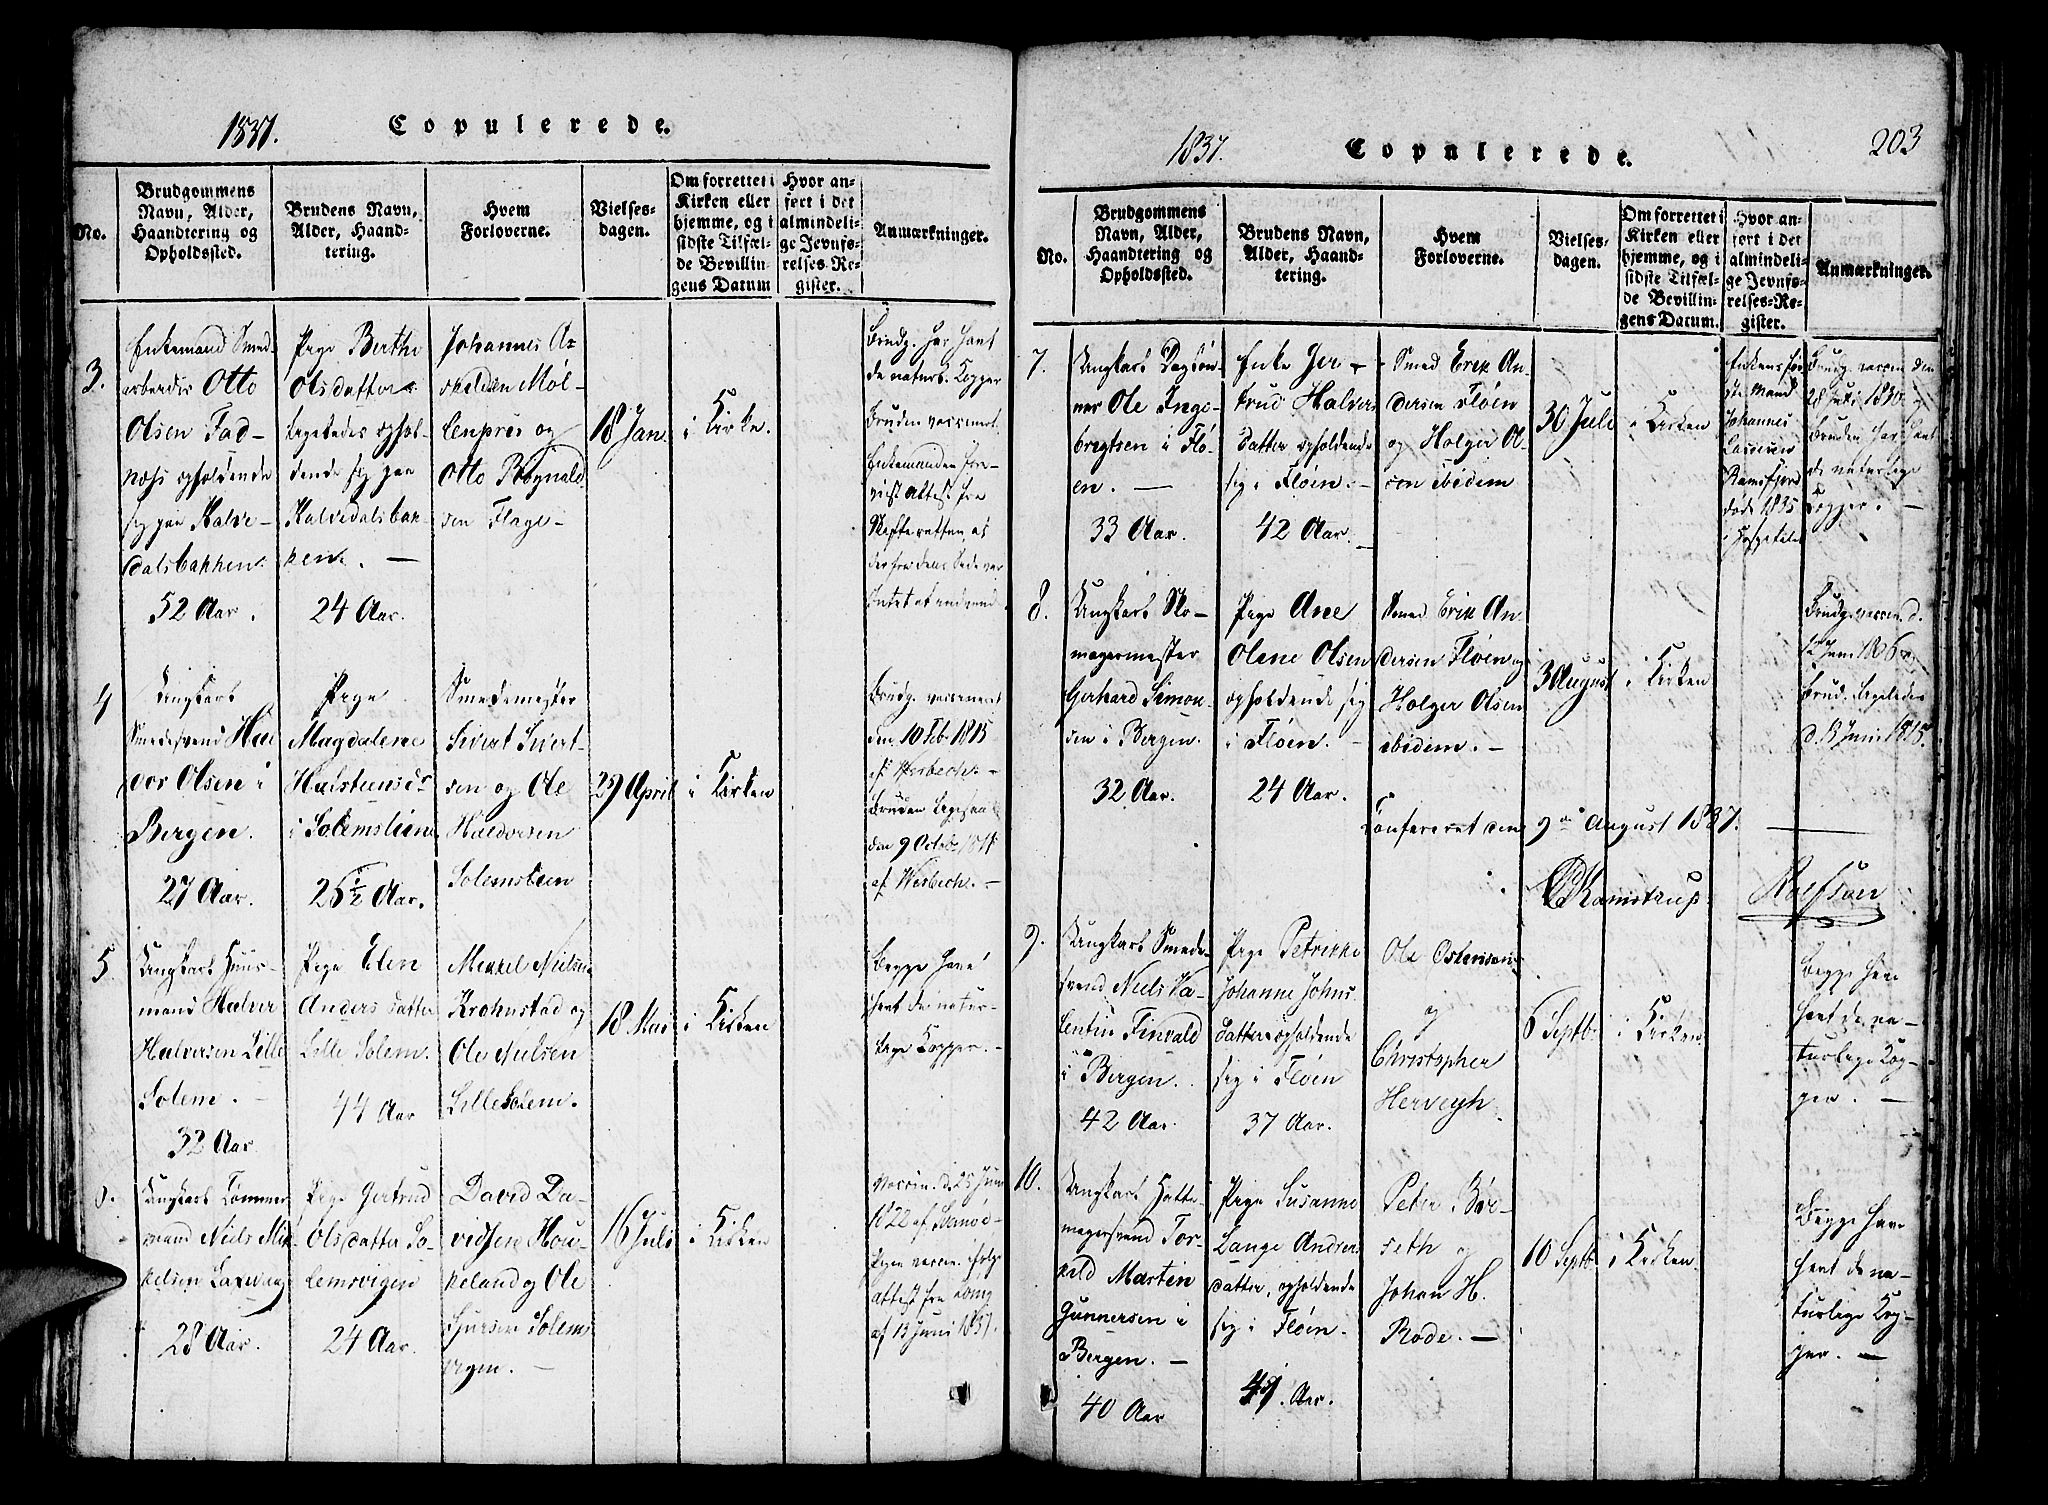 1837. Copulerede.
No.
Brudgommens
Navn, Alder,
Haandtering og
Opholdssted.
Brudens Navn,
Alder, Haand-
tering.
Hvem
Forloverne.
Vielses-
dagen.
Om forrettet i
Kirken eller
hjemme, og i
sidste Tilfæl-
de Bevillin-
gens Datum
Hvor an-
ført i det
almindeli-
ge Jevnfø-
relses-Re-
gister.
Anmærkninger.
3.
Enkemand Smed-
arbeider Otto
Olsen Fad-
næss opholdende
sig paa Kalve-
dalsbakken.
52 Aar.
Pige Berthe
Olsdatter
ligeledes ophol-
dende sig paa
Kalvedalsbak-
ken. —
24 Aar.
Johannes
Möl-
lenpris og
Otto
sen Flage-
18 Jan.
i Kirke.
Brudg. har havt
de naturl. Kopper
Bruden vaccineret.
Enkemanden
viist Attest fra
Skifteretten, at
der fra dens Side var
Intet at indvende
4
Ungkarl
Smedesvend Hal
vor Olsen i
Bergen.
27 Aar.
Pige
Magdalene
Halsteensdr
i Solemslien
25 1/2 Aar.
Smedemester
Sivert Sivert-
sen og Ole
Haldorsen
Solemsleen
29 April
i Kirken
Brudg. vaccineret
den 10 Feb. 1815
af Wesbech. —
Bruden ligesaa
den 9 Octob.
af Wesbech. —
5.
Ungkarl Huus-
mand Halver
Halversen Lille
Solem. —
32 Aar.
Pige Elen
Anders datter
Lille Solem.
44 Aar
Mikkel Nielsen
Krohnstad og
Ole Nielsen
Lille Solem.
18 Mai
i Kirken
Begge have
havt de natur-
lige Kopper. —
Ungkarl Tømmer
mand Niels Mik
kelsen Laxevaag
28 Aar.
Pige Gertrud
Olsdatter So-
lemsvigen
24 Aar.
David Da-
vidsen Hou-
keland og Ole
Sjursen Solems
vigen. —
16 Juli
i Kirken
vaccin. d. 25 Juni
1822 af
Pigen vaccin. ifølge
Attest fra
af 13 Juni 1837.
1837. Copulerede. 203
No.
Brudgommens
Navn, Alder,
Haandtering og
Opholdssted.
Brudens Navn,
Alder, Haand-
tering.
Hvem
Forloverne.
Vielses-
dagen.
Om forrettet i
Kirken eller
hjemme, og i
sidste Tilfæl-
de Bevillin-
gens Datum.
Hvor an-
ført i det
almindeli-
ge Jevnfø-
relses-Re-
gister.
Anmærkninger.
7.
Ungkarl Dagløn-
ner Ole Inge-
bregtsen i Flø-
en. —
33 Aar.
Enke Jer-
trud Halvers
datter opholdende
sig i Fløen. —
42 Aar.
Smed Erik An-
dersen Fløen
og Holger Ol-
sen ibidem
30 Juli
i Kirken
Enkens før
ste Mand
Johannes
Lassesen
Ramsfjord
døde 1835
i Hospitalet
Brudg. vaccin. den
28 Juli 1830.
Bruden har havt
de naturlige
Kopper. —
8.
Ungkarl Sko-
magermester
Gerhard Simon-
sen i Bergen.
32 Aar.
Pige Ane
Olene Olsen
opholdende sig
i Fløen. —
24 Aar.
Smed Erik An-
dersen Fløen og
Holger Olsen
ibidem. —
3 August
i Kirken
Brudg. vaccin. d.
Brud. ligeledes
Confereret den 9de August 1837.
Kamstrup
Rolfsen
9.
Ungkarl Smede-
svend Niels Va-
lentin Finvald
i Bergen.
42 Aar.
Pige Petrikke
Johanne Johns
datter opholdende
sig i Fløen
37 Aar.
Ole Ostensen
og
Christopher
Herveyh
6 Septb.
i Kirken
Begge have
havt de na-
turlige Kop-
per. —
10.
Ungkarl Hatte
magersvend Tor-
kild Martin
Gunnersen i
Bergen. —
40 Aar
Pige Susanne
Lange Anders
datter, opholdende
sig i Fløen.
Aar.
Peter Bør-
seth og
Johan H.
Rode. —
10 Septb
i Kirken.
Begge have
havt de na-
turlige Kop-
per. —